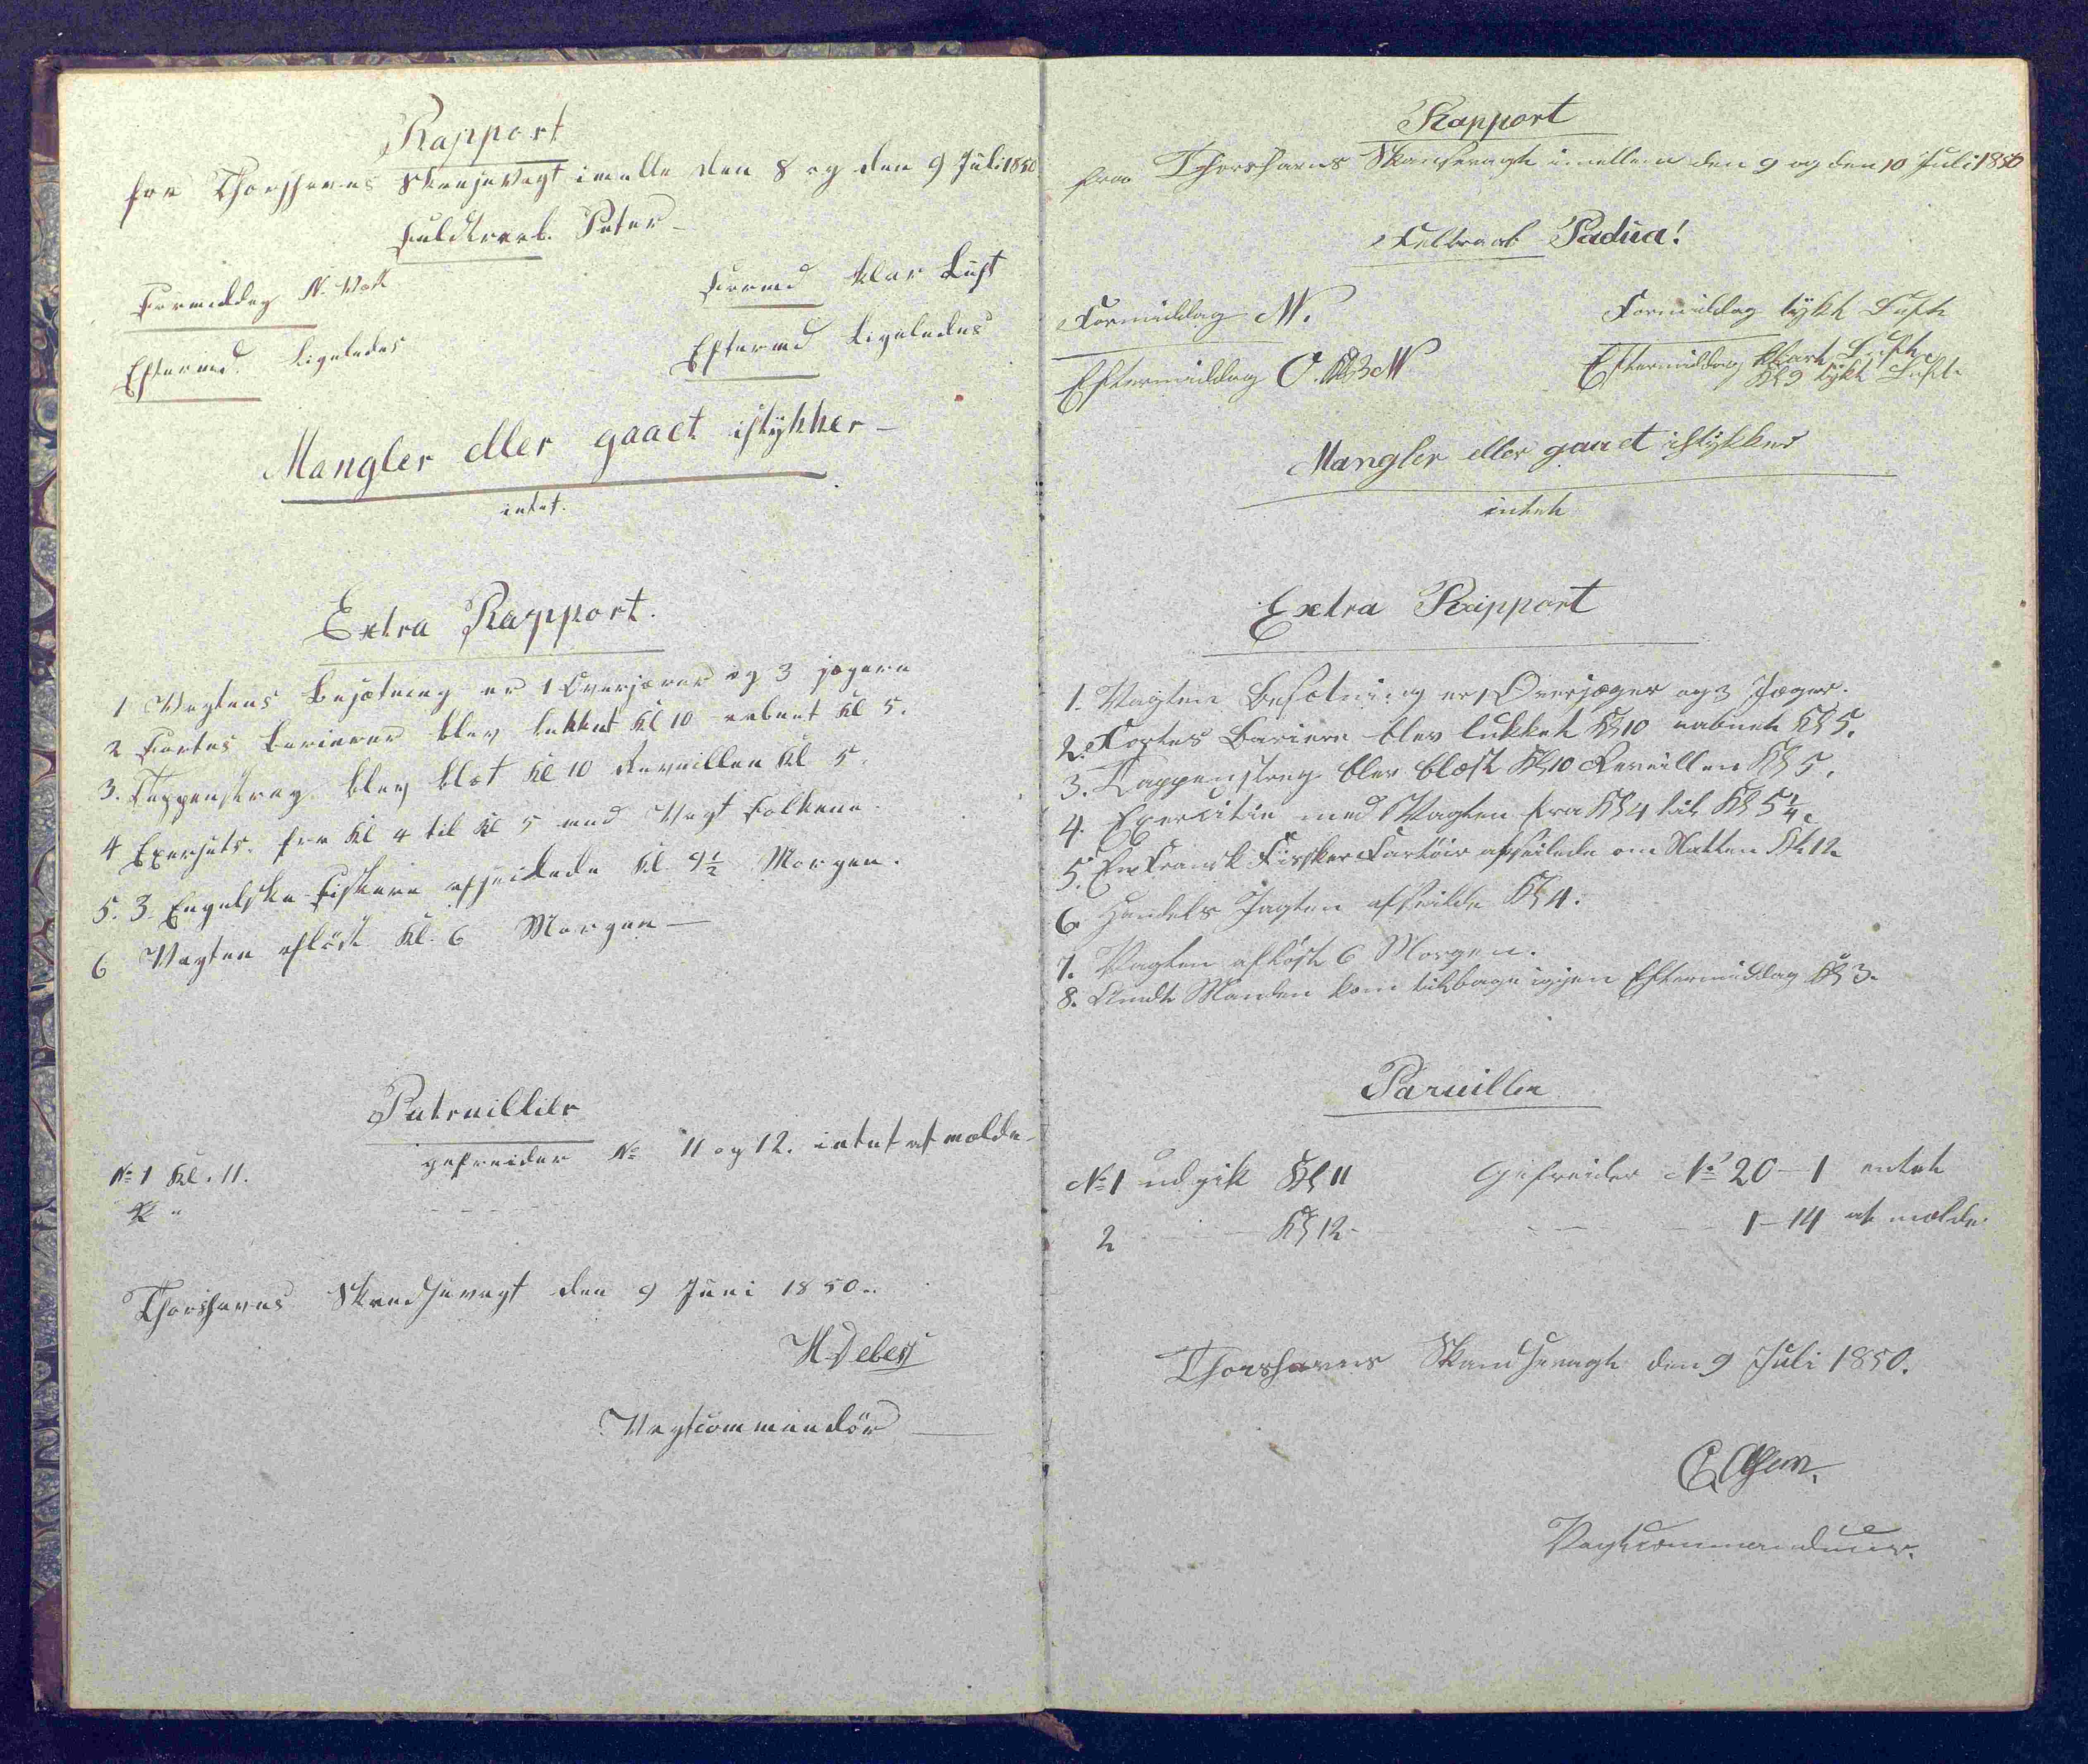 Rapport
fra Thorshavns Skansevagt imelle den 8 og den 9 Juli 1850
Feldtraab. Peter
Formiddag N. Vest
Formd klar Luft
Eftermd. Ligeledes
Eftermd Ligeledes
Mangler eller gaaet istykker
intet.
Extra Rapport.
1 Vagtens besætning er 1 Overjæger og 3 jægere
2 Fortes barierer blev lukket Kl 10 aabnet Kl 5.
3. Tappenstræg blev blæst Kl 10 Reveillen Kl 5.
4 Exersits. fra Kl 4 til Kl 5 med Vagt Folkene.
5. 3 Engelske Fiskere afseilede Kl 9½ Morgen.
6 Vagten afløst Kl. 6 Morgen
Patrouillier
No 1 Kl. 11. gefreider No 11 og 12. intet at melde
2 "
Thorshavns Skandsevagt den 9 Juni 1850.
H Debes
Vagtcommandör
Rapport
fraa Thorshavns Skansevagt imellem den 9 og den 10 Juli 1850
Feltraab Padua!
Formiddag N.
Formiddag tykt Luft
Eftermiddag O. Kl 3 N
Eftermiddag klart Luft
Kl 9 tykt Luft
Mangler eller gaaet istykker
intet
Extra Rapport
1. Vagten Besætning er 1 Overjæger og 3 Jæger.
2. Fortes Bariere blev lukket Kl 10 aabnet Kl 5.
3. Tappenstreg blev blæst Kl 10 Reveillen Kl 5.
4. Exercitie med Vagten fra Kl 4 til Kl 5¼.
5. En Fransk Fisker Fartöir afseilede om Natten Kl 12
6 Handels Jagten afseilde Kl 4.
7. Vagten afløst 6 Morgen.
8. Manden kom tilbage igjen Eftermiddag Kl 3.
Paruillen
No 1 udgik Kl 11 Gefreider No 20 - 1 entet
2 Kl 12 1 - 14 at melde
Thorshavns Skandsevagt den 9 Juli 1850.
Vagtcommandeur.